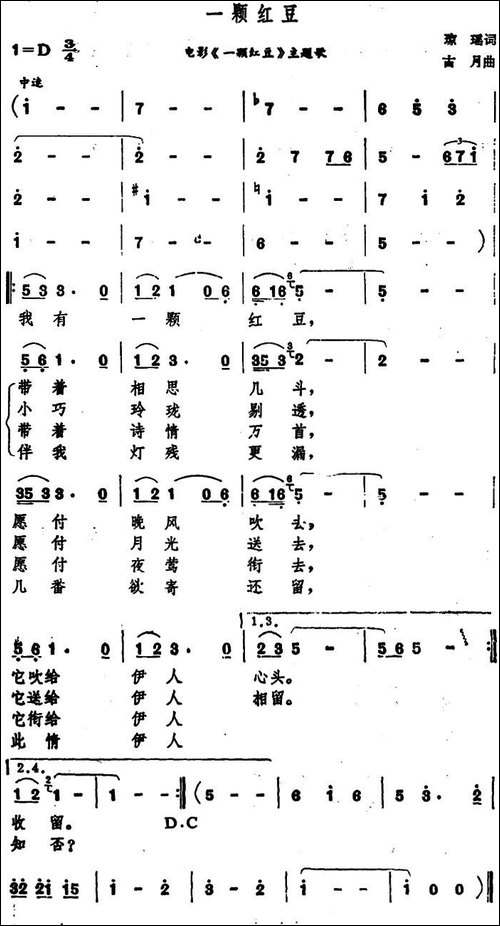 一颗红豆
1=D 3/4
电影《一颗红豆》主题歌
琼 瑶词
古 月曲
中速
(i - - | 7 - - | ♭7 - - | 6 5 3 |
2 - - | 2 - - | 2 7 7 6 | 5 - 6 7 i |
2 - - | #i - - | ♮i - - | 7 i 2 |
i - - | 7 - - | 6 - - | 5 - - )|
‖: 5 3 3· 0 | 1 2 1 0 6 | 6 1 6 5 - - | 5 - - |
我 有 一 颗 红 豆,
5 6 1· 0 | 1 2 3· 0 | 3 5 3 2 - - | 2 - - |
带 着 相 思 几 斗,
小 巧 玲 珑 剔 透,
带 着 诗 情 万 首,
伴 我 灯 残 更 漏,
3 5 3 3· 0 | 1 2 1 0 6 | 6 1 6 5 - - | 5 - - |
愿 付 晚 风 吹 去,
愿 付 月 光 送 去,
愿 付 夜 莺 衔 去,
几 番 欲 寄 还 留,
1.3.
5 6 1· 0 | 1 2 3· 0 | 2 3 5 - | 5 6 5 :‖
它吹给 伊 人 心头。
它送给 伊 人 相留。
它衔给 伊 人
此 情 伊 人
2.4.
1 2 1 - | 1 - - :‖ (5 - - | 6 i 6 | 5 3· 2 |
收 留。 D.C
知 否?
3 2 2 1 1 5 | i - 2 | 3 - 2 | i - - | i 0 0 )‖